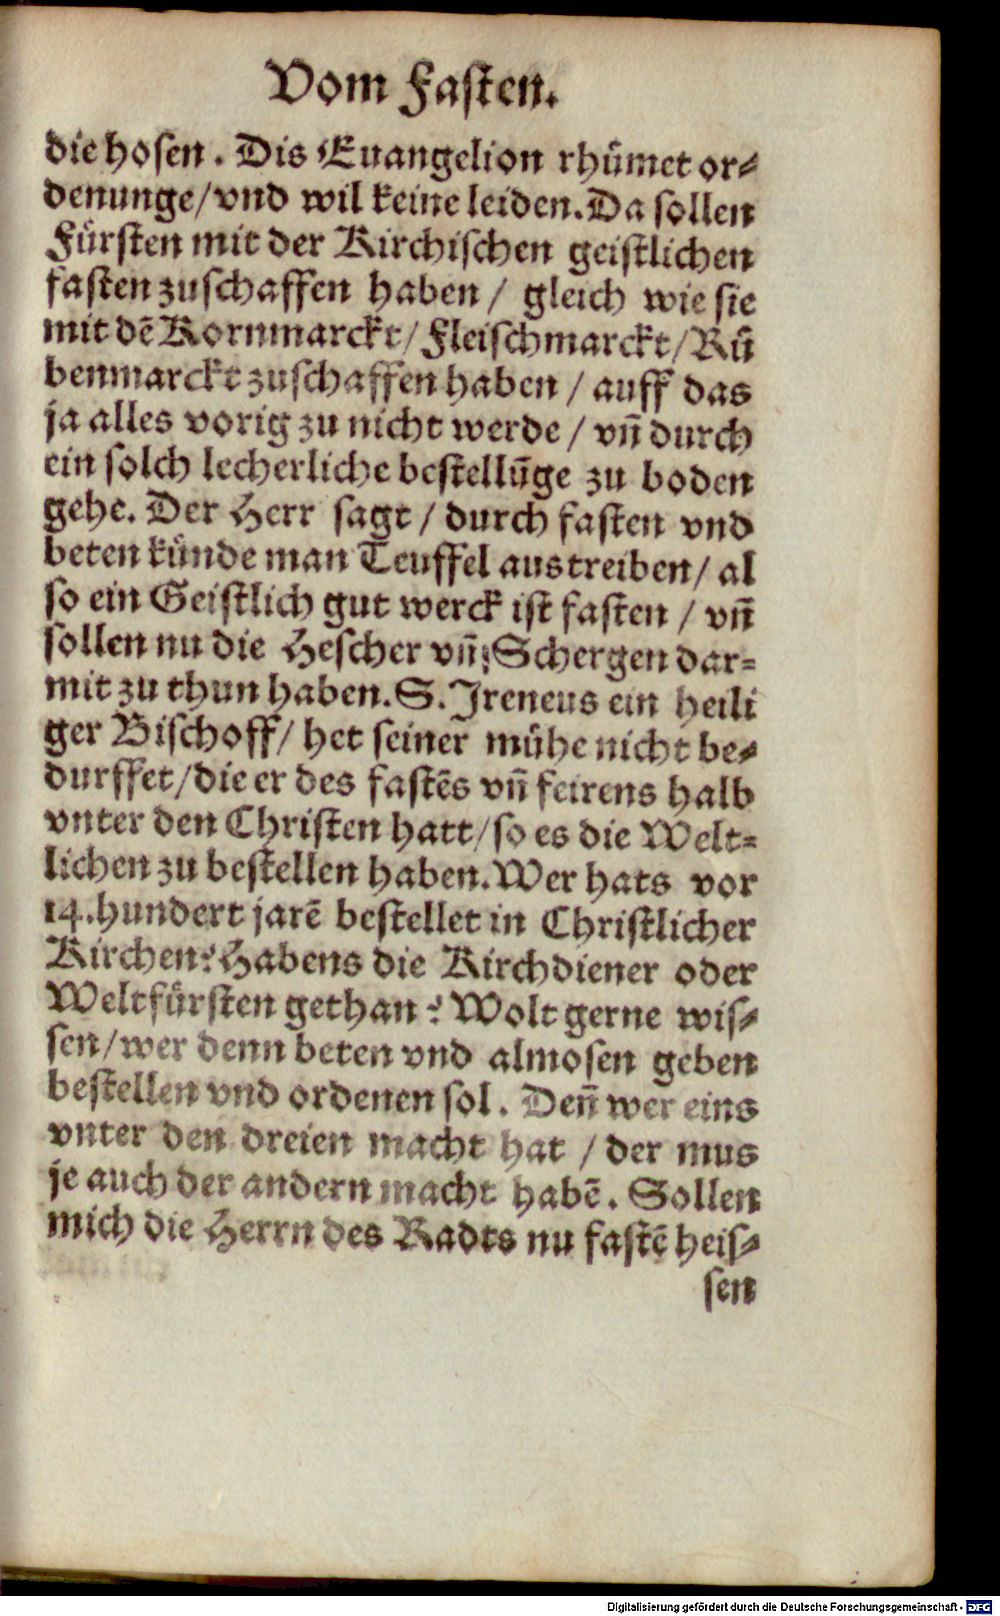 Vom Fasten.
die hosen. Dis Euangelion rhümet or-
denunge/vnd wil keine leiden. Da sollen
Fürsten mit der Kirchischen geistlichen
fasten zuschaffen haben/ gleich wie sie
mit dē Kornmarckt/Fleischmarckt/Rü
benmarckt zuschaffen haben/ auff das
ja alles vorig zu nicht werde/ vn̄ durch
ein solch lecherliche bestellūge zu boden
gehe. Der Herr sagt/ durch fasten vnd
beten künde man Teuffel austreiben/ al
so ein Geistlich gut werck ist fasten/ vn̄
sollen nu die Hescher vn̄ Schergen dar-
mit zu thun haben. S. Ireneus ein heili
ger Bischoff/ het seiner mühe nicht be-
durffet/die er des fastēs vn̄ feirens halb
vnter den Christen hatt/so es die Welt-
lichen zu bestellen haben. Wer hats vor
14. hundert jarē bestellet in Christlicher
Kirchen? Habens die Kirchdiener oder
Weltfürsten gethan? Wolt gerne wis-
sen/wer denn beten vnd almosen geben
bestellen vnd ordenen sol. Den̄ wer eins
vnter den dreien macht hat/ der mus
je auch der andern macht habē. Sollen
mich die Herrn des Radts nu fastē heis-
sen
Digitalisierung gefördert durch die Deutsche Forschungsgemeinschaft - DFG